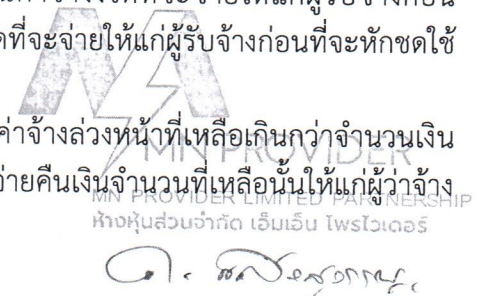 ที่จะจ่ายให้แก่ผู้รับจ้างก่อนที่จะหักชดใช้
ค่าจ้างล่วงหน้าที่เหลือเกินกว่าจำนวนเงิน
MN PROVIDER
จ่ายคืนเงินจำนวนที่เหลือนั้นให้แก่ผู้ว่าจ้าง
MN PROVIDER LIMITED PARTNERSHIP
ห้างหุ้นส่วนจำกัด เอ็มเอ็น โพรไวเดอร์